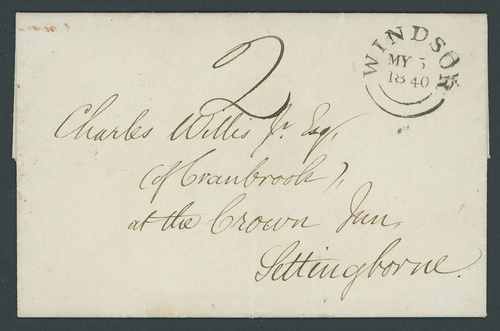 WINDSOR
MY 5
1840
2
Charles Willis Jr. Esq,
(of Cranbrook),
at the Crown Inn,
Settingborne.